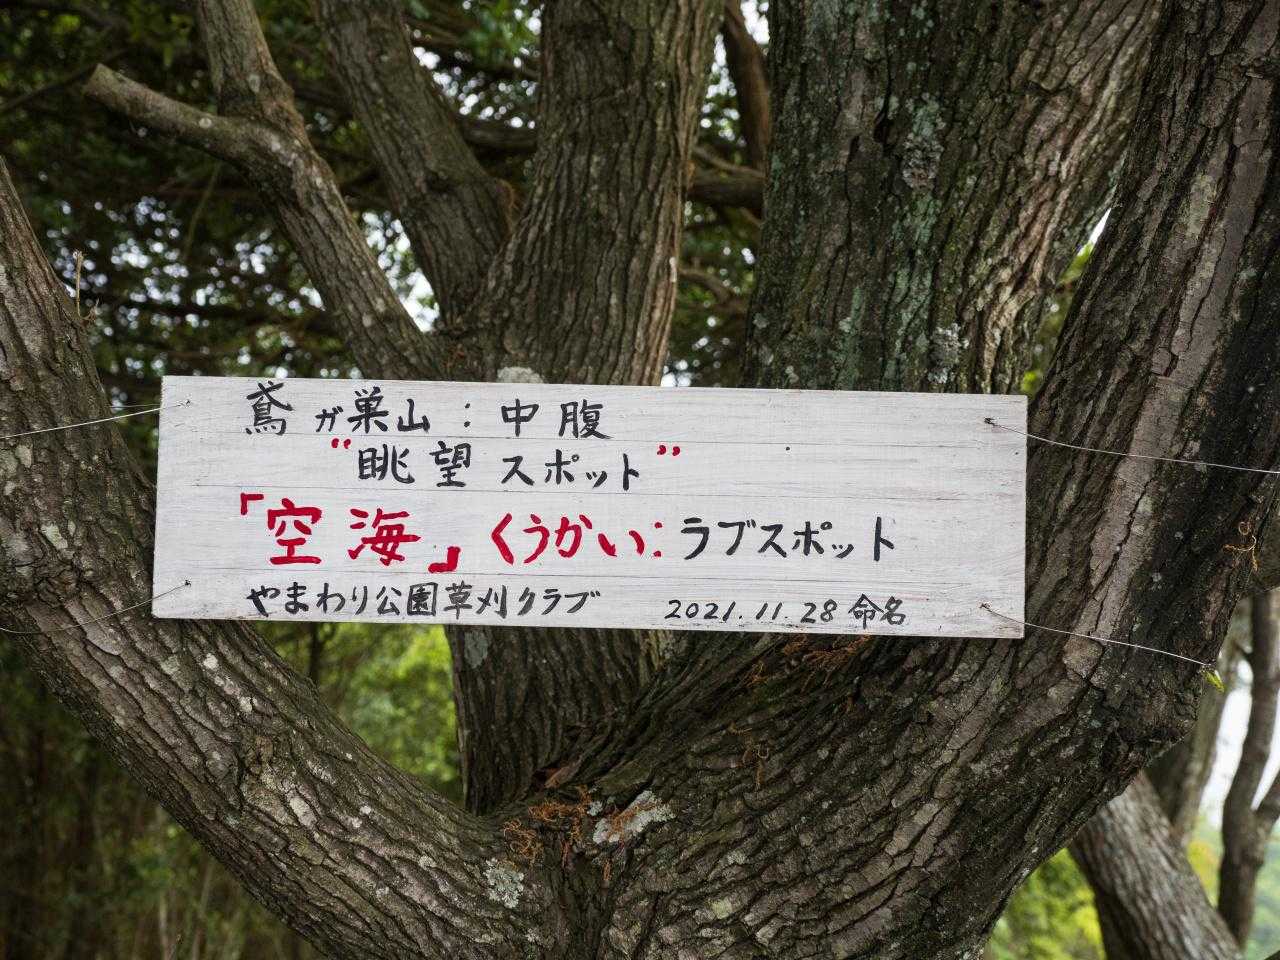 鳶ガ巣山：中腹
"眺望スポット"
「空海」くうかい：ラブスポット
やまわり公園草刈クラブ 2021.11.28 命名